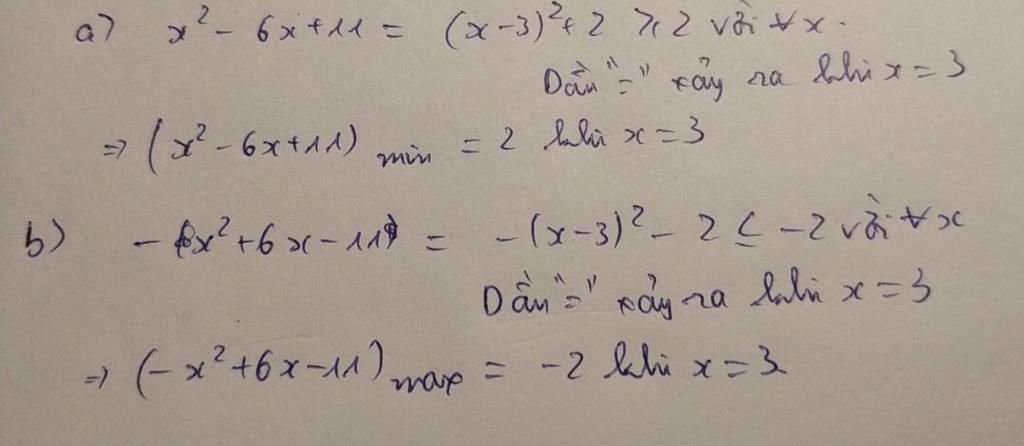 a) x² - 6x + 11 = (x-3)² + 2 ≥ 2 với ∀x.
Dấu "=" xảy ra khi x = 3
⇒ (x² - 6x + 11) min = 2 khi x = 3
b) -x² + 6x - 11 = -(x-3)² - 2 ≤ -2 với ∀x
Dấu "=" xảy ra khi x = 3
⇒ (-x² + 6x - 11) max = -2 khi x = 3